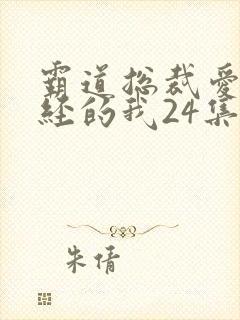 霸道总裁爱
经的我24集
朱倩